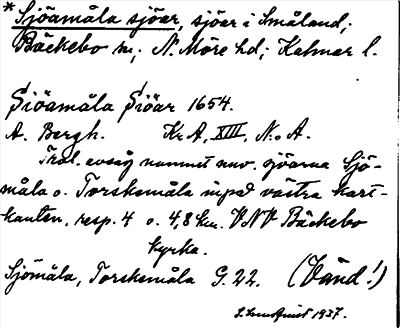 * Sjöamåla sjöar, sjöar i Småland;
Bäckebo sn; N. Möre hd; Kalmar l.
Siöamåla Siöar 1654.
A. Bergh. KrA, XIII, N:o A.
Trol. avsåg namnet nuv. sjöarna Sjö-
måla o. Torskemåla inpå västra kart-
kanten, resp. 4 o. 4,8 km. VNV Bäckebo
kyrka.
Sjömåla, Torskemåla G. 22. (Vänd!)
1937.